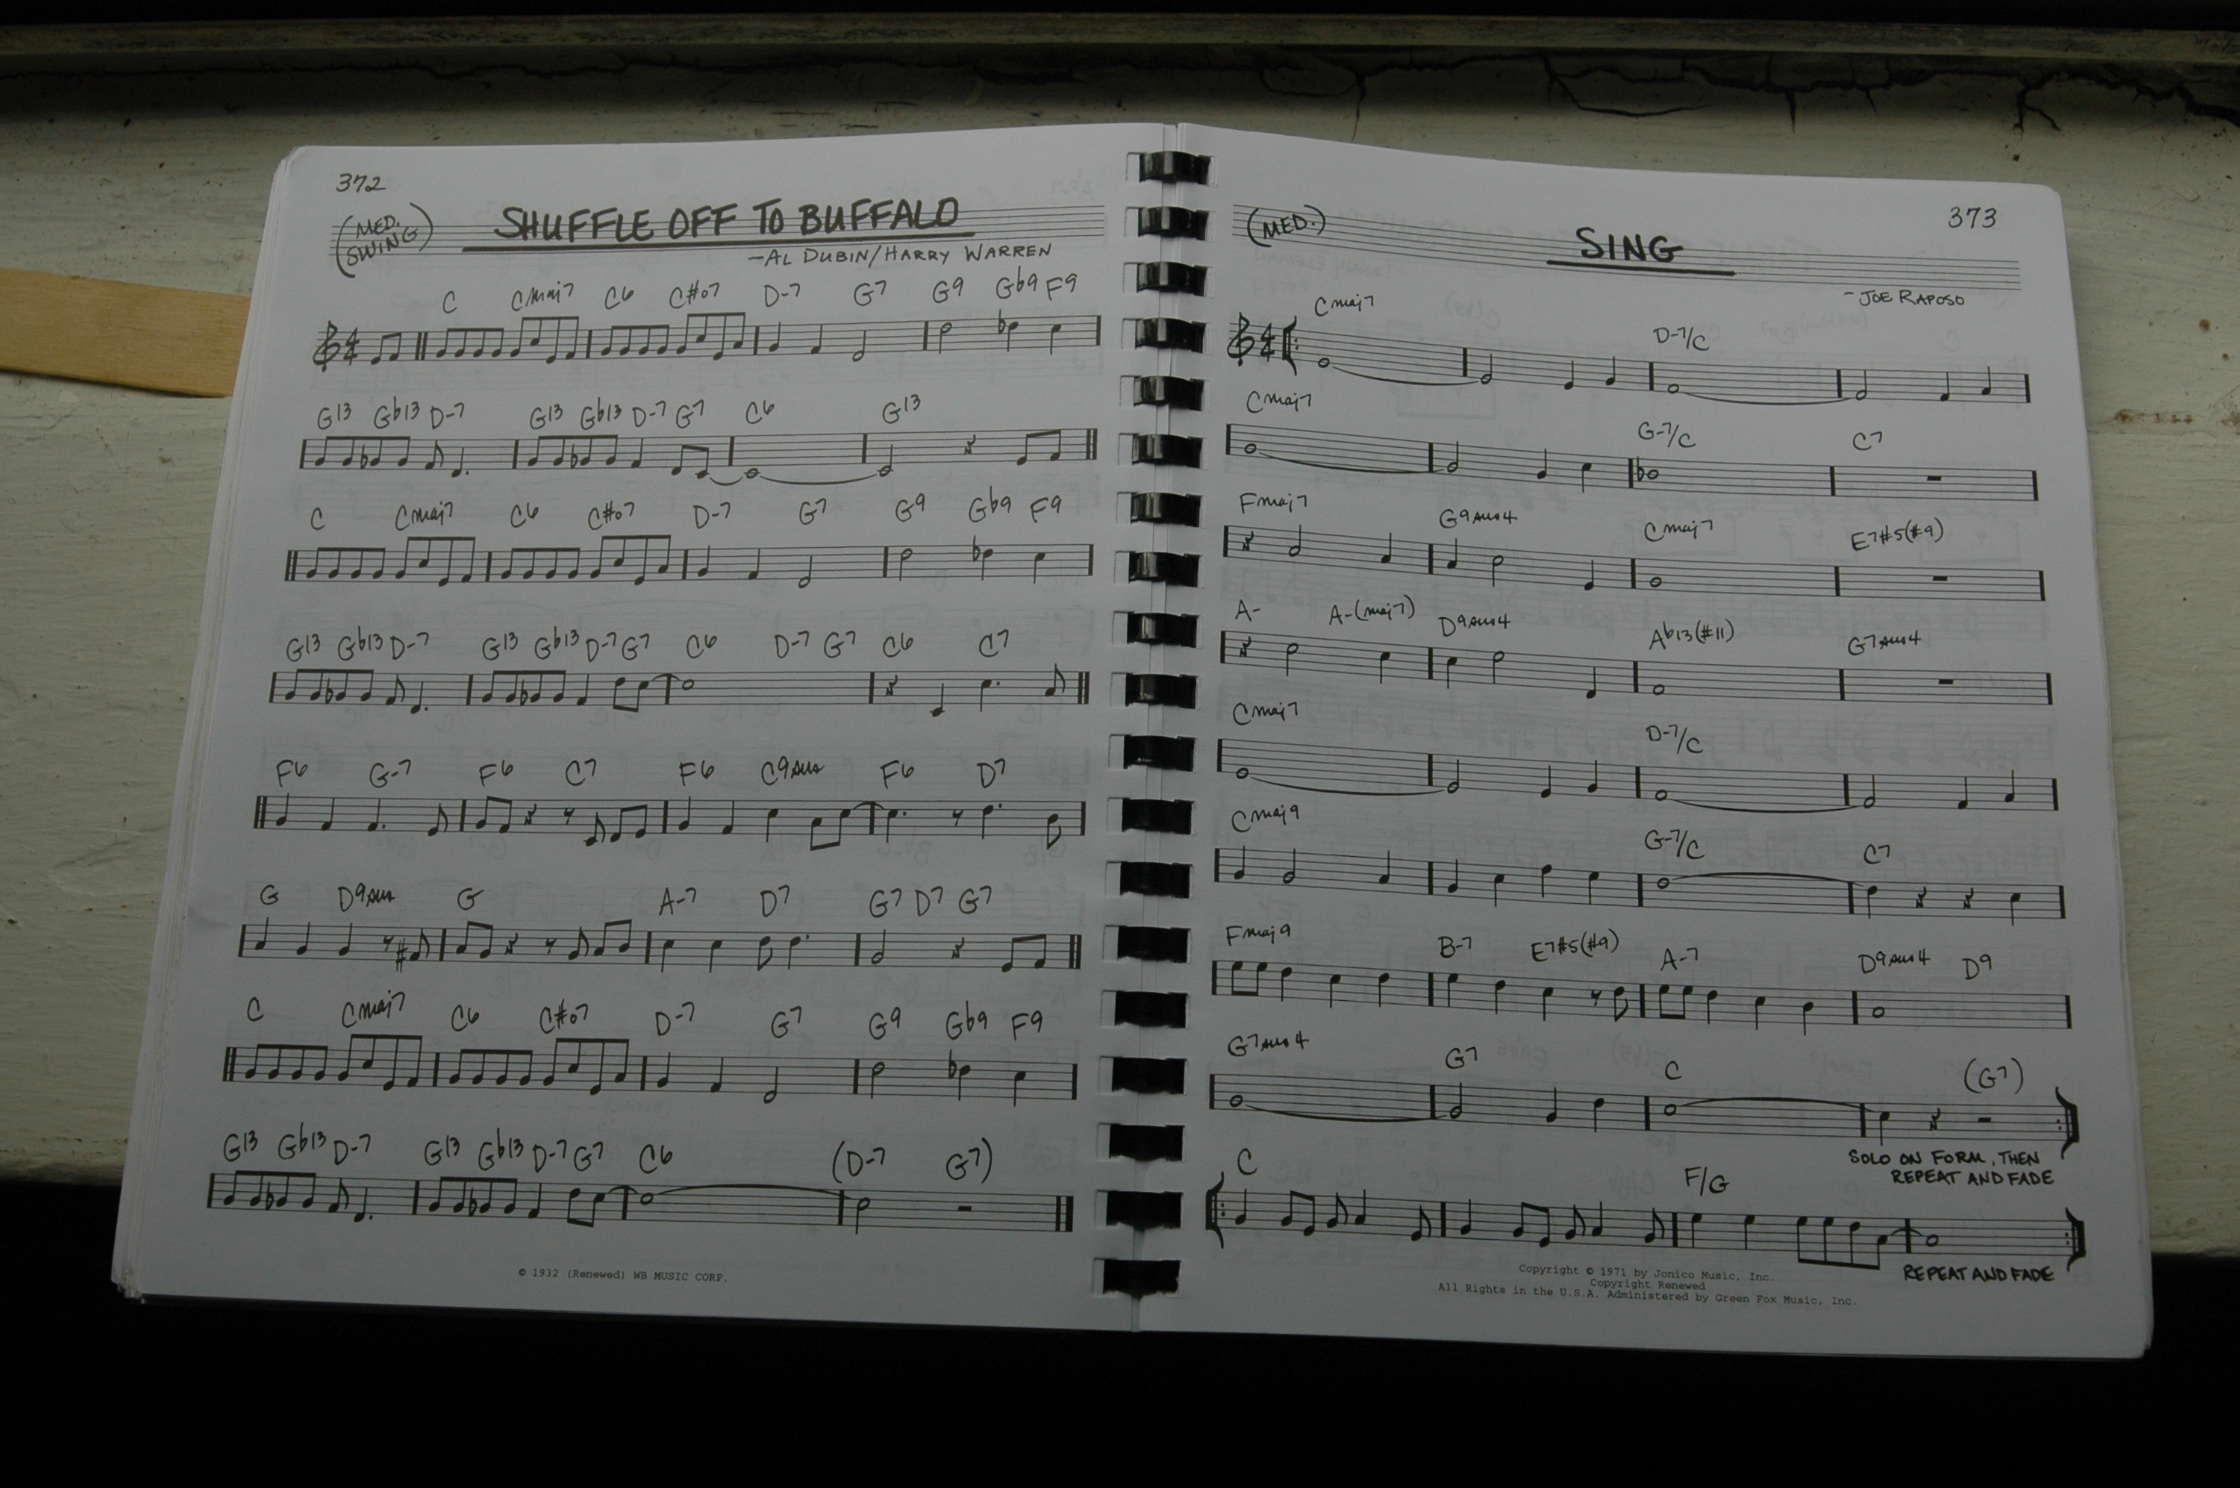 372
(MED. SWING)
SHUFFLE OFF TO BUFFALO
-AL DUBIN/HARRY WARREN
C Cmaj7 C6 C#o7 D-7 G7 G9 Gb9 F9
G13 Gb13 D-7 G13 Gb13 D-7 G7 C6 G13
C Cmaj7 C6 C#o7 D-7 G7 G9 Gb9 F9
G13 Gb13 D-7 G13 Gb13 D-7 G7 C6 D-7 G7 C6 C7
F6 G-7 F6 C7 F6 C9sus F6 D7
G D9sus G A-7 D7 G7 D7 G7
C Cmaj7 C6 C#o7 D-7 G7 G9 Gb9 F9
G13 Gb13 D-7 G13 Gb13 D-7 G7 C6 (D-7 G7)
© 1932 (Renewed) WB MUSIC CORP.
373
(MED.)
SING
-JOE RAPOSO
Cmaj7 D-7/C
Cmaj7 G-7/C C7
Fmaj7 G9sus4 Cmaj7 E7#5(#9)
A- A-(maj7) D9sus4 Ab13(#11) G7sus4
Cmaj7 D-7/C
Cmaj9 G-7/C C7
Fmaj9 B-7 E7#5(#9) A-7 D9sus4 D9
G7sus4 G7 C (G7)
SOLO ON FORM, THEN
REPEAT AND FADE
C F/G
REPEAT AND FADE
Copyright © 1971 by Jonico Music, Inc.
Copyright Renewed
All Rights in the U.S.A. Administered by Green Fox Music, Inc.